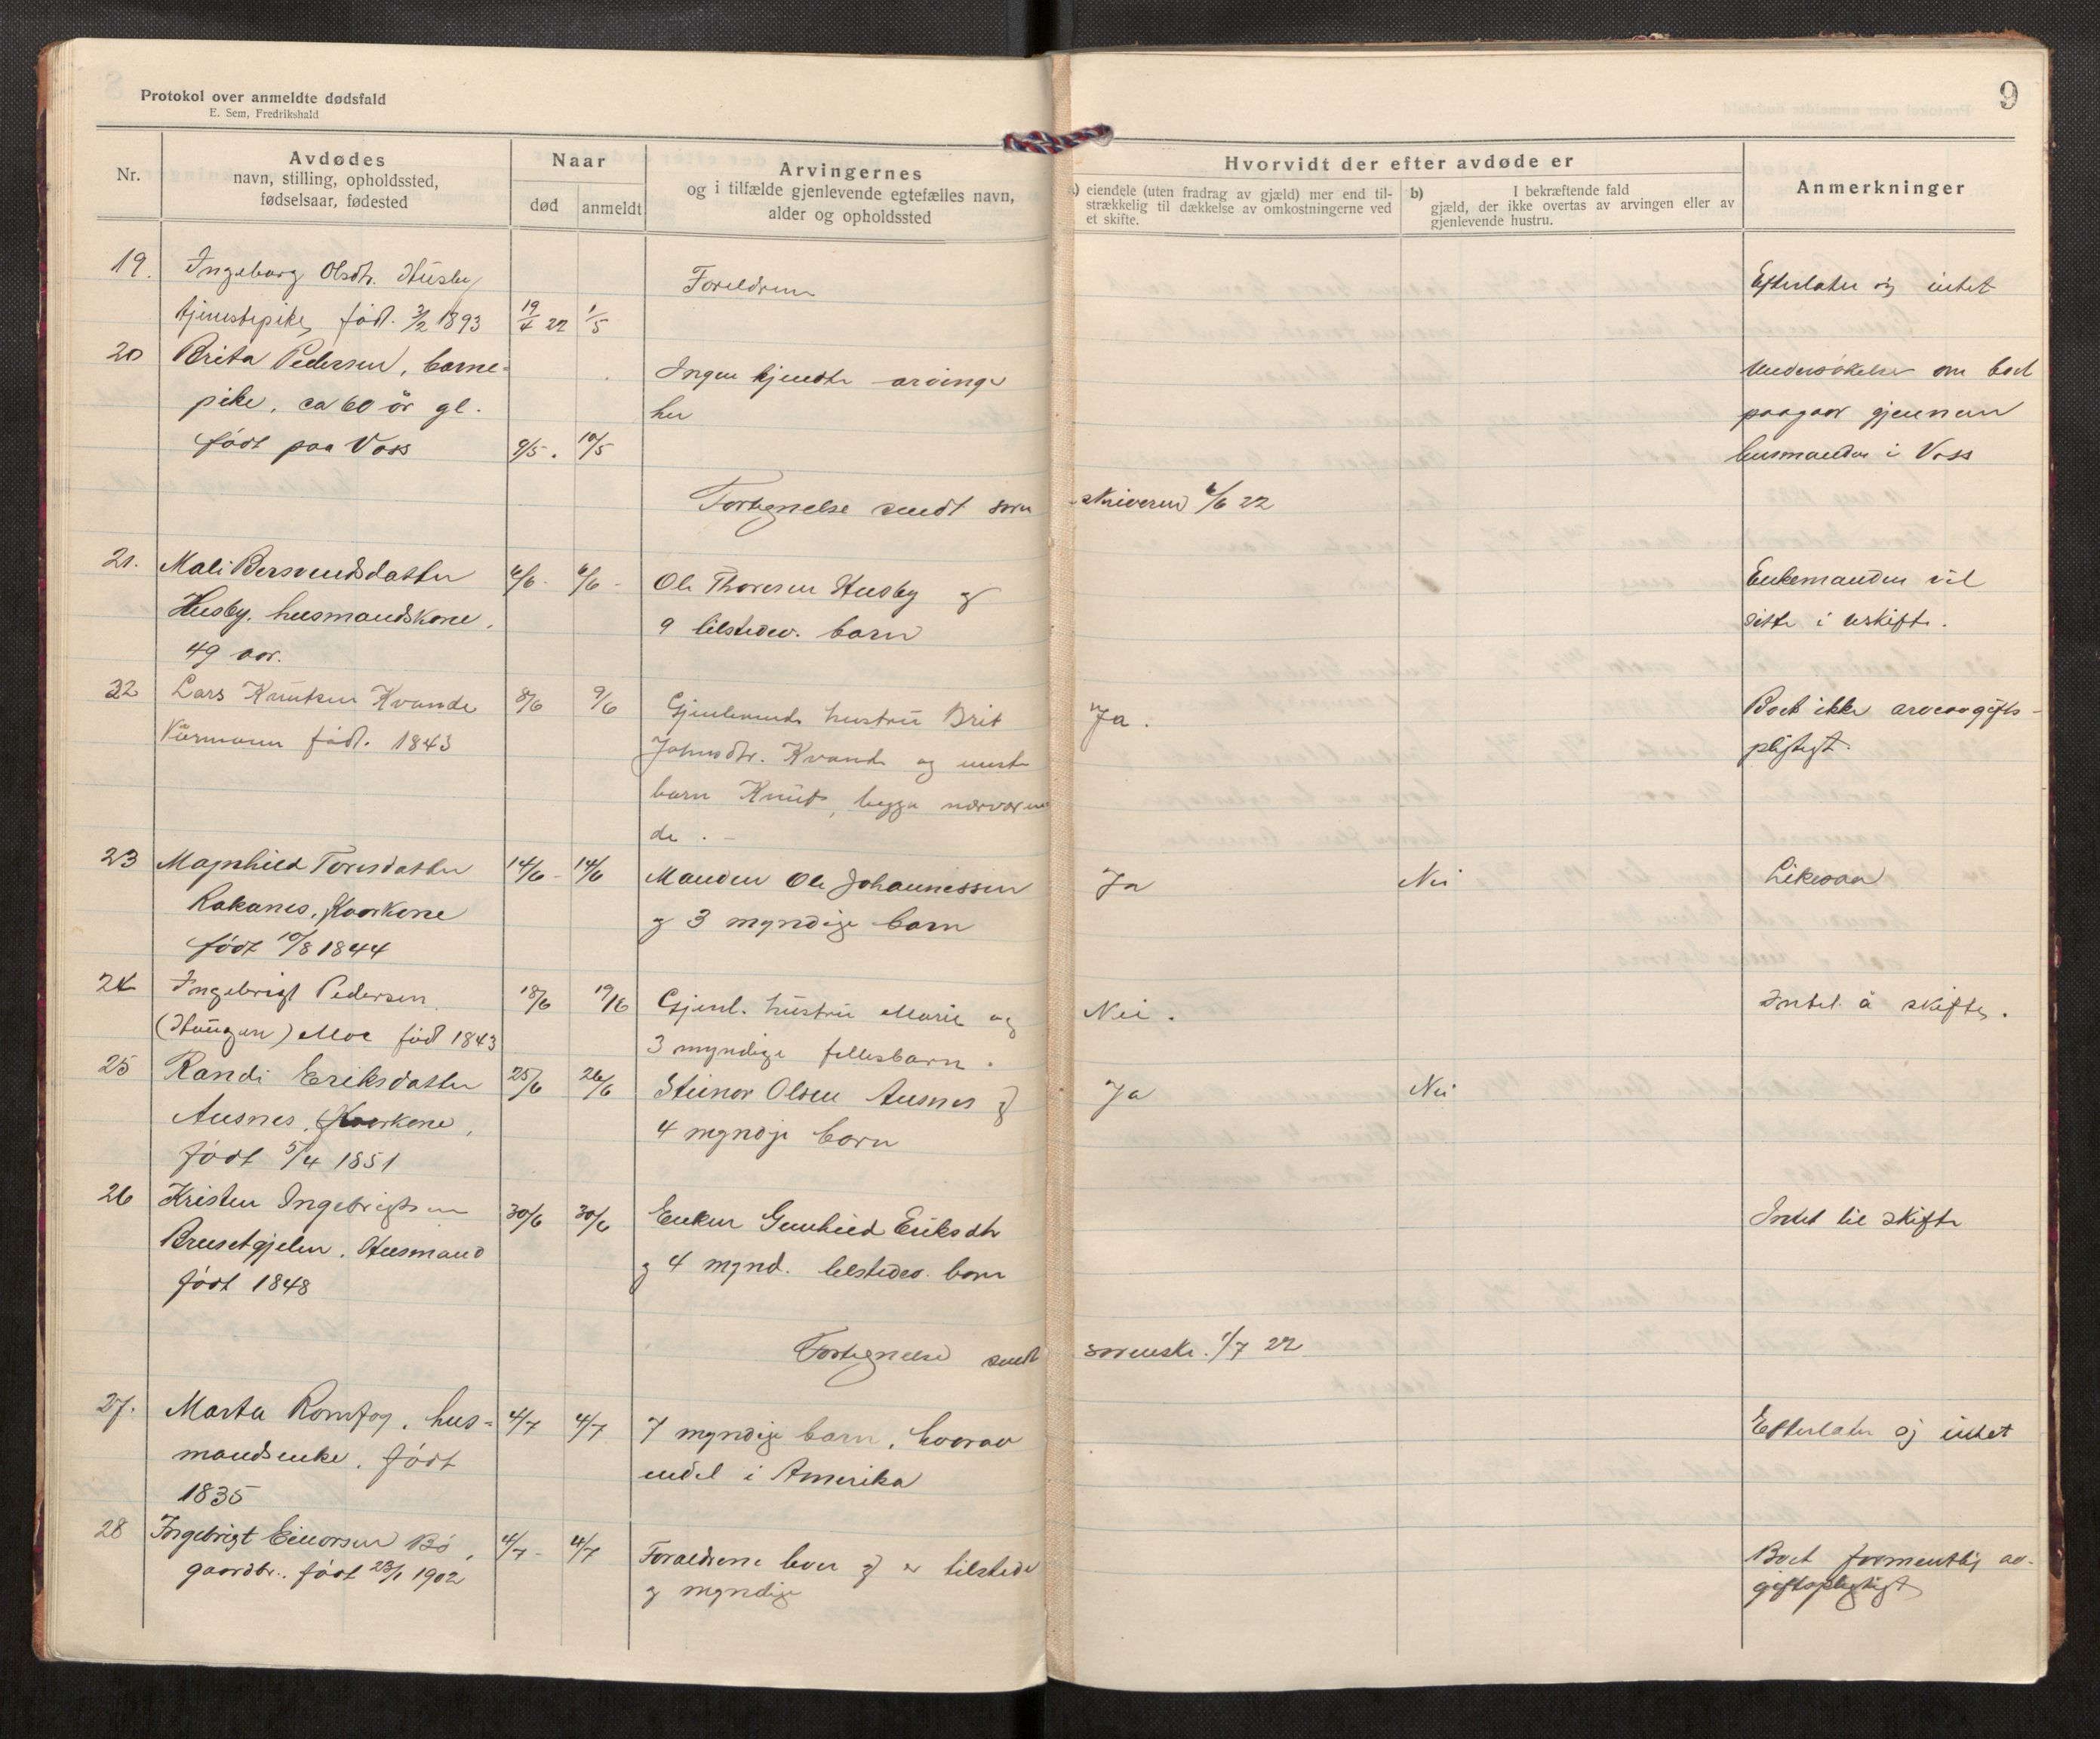 Protokol over anmeldte dødsfald
E. Sem, Fredrikshald
9
Nr.
Avdødes
navn, stilling, opholdssted,
fødselsaar, fødested
Naar
død
anmeldt
Arvingernes
og i tilfælde gjenlevende egtefælles navn,
alder og opholdssted
Hvorvidt der efter avdøde er
a) eiendele (uten fradrag av gjæld) mer end til-
strækkelig til dækkelse av omkostningerne ved
et skifte.
b) I bekræftende fald
gjæld, der ikke overtas av arvingen eller av
gjenlevende hustru.
Anmerkninger
19. Ingeborg Olsdtr. Husby
tjenestepike, født. 3/2 1893
19/4 22
1/5
Foreldrene
Efterlater sig intet
20 Brita Pedersen, barne-
pike, ca 60 år gl.
født paa Voss
9/5.
10/5
Ingen kjendte arvinger
her
Undersøkelse om boet
paagaar gjennem
lensmanden i Voss
Fortegnelse sendt soren
skriveren 6/6 22
21. Mali Bersvendsdatter
Husby, husmandskone,
49 aar.
6/6 -
6/6 -
Ole Thoresen Husby og
9 tilstedev. barn
Enkemanden vil
sitte i uskifte.
22 Lars Knutsen Kvande
Kårmann født. 1843
8/6
9/6
Gjenlevende hustru Brit
Johnsdtr. Kvande og eneste
barn Knut, begge nærværen
de. -
Ja.
Boet ikke arveavgifts-
pligtigt.
23 Magnhild Toresdatter
Rakanes, Kaarkone
født 10/8 1844
14/6 -
14/6
Manden Ole Johannessen
og 3 myndige barn
Ja
Nei
Likesaa
24 Ingebrigt Pedersen
(Haugen) Moe født 1843
18/6
19/6
Gjenl. hustru Marie og
3 myndige fellesbarn.
Nei.
Intet å skifte.
25 Randi Eriksdatter
Ausnes, Kaarkone,
født 5/4 1851
25/6
26/6
Steinar Olsen Ausnes og
4 myndige barn
Ja
Nei
26 Kristen Ingebrigtsen
Brusetgjelen. Husmand
født 1848
30/6
30/6
Enken Gunhild Eriksdtr
og 4 mynd. tilstedev. barn
Intet til skifte
Fortegnelse sendt
sorenskr. 1/7 22
27. Marta Romfog, hus-
mandsenke, født
1835
4/7
4/7
7 myndige barn, hvorav
endel i Amerika
Efterlater sig intet
28 Ingebrigt Einarsen Bø,
gaardbr., født 23/1 1902
4/7 -
4/7
Forældrene lever og er tilstede
og myndige
Boet formentlig av-
giftspligtigt